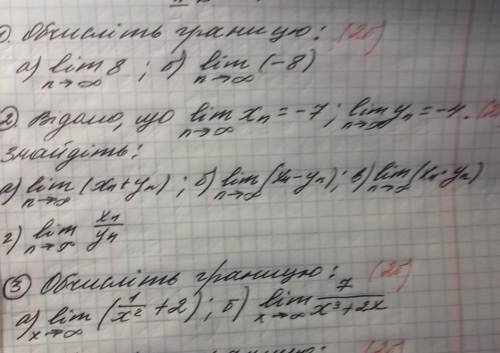 1. Обчисліть границю: (2б)
а) lim n→∞ 8 ; б) lim n→∞ (-8)
2. Відомо, що lim n→∞ xₙ = -7 ; lim n→∞ yₙ = -4.
Знайдіть:
а) lim n→∞ (xₙ+yₙ) ; б) lim n→∞ (xₙ-yₙ) ; в) lim n→∞ (xₙ·yₙ)
г) lim n→∞ xₙ/yₙ
3 Обчисліть границю: (2б)
а) lim x→∞ (1/x² + 2) ; б) lim x→∞ 7/(x³+2x)
(2б)